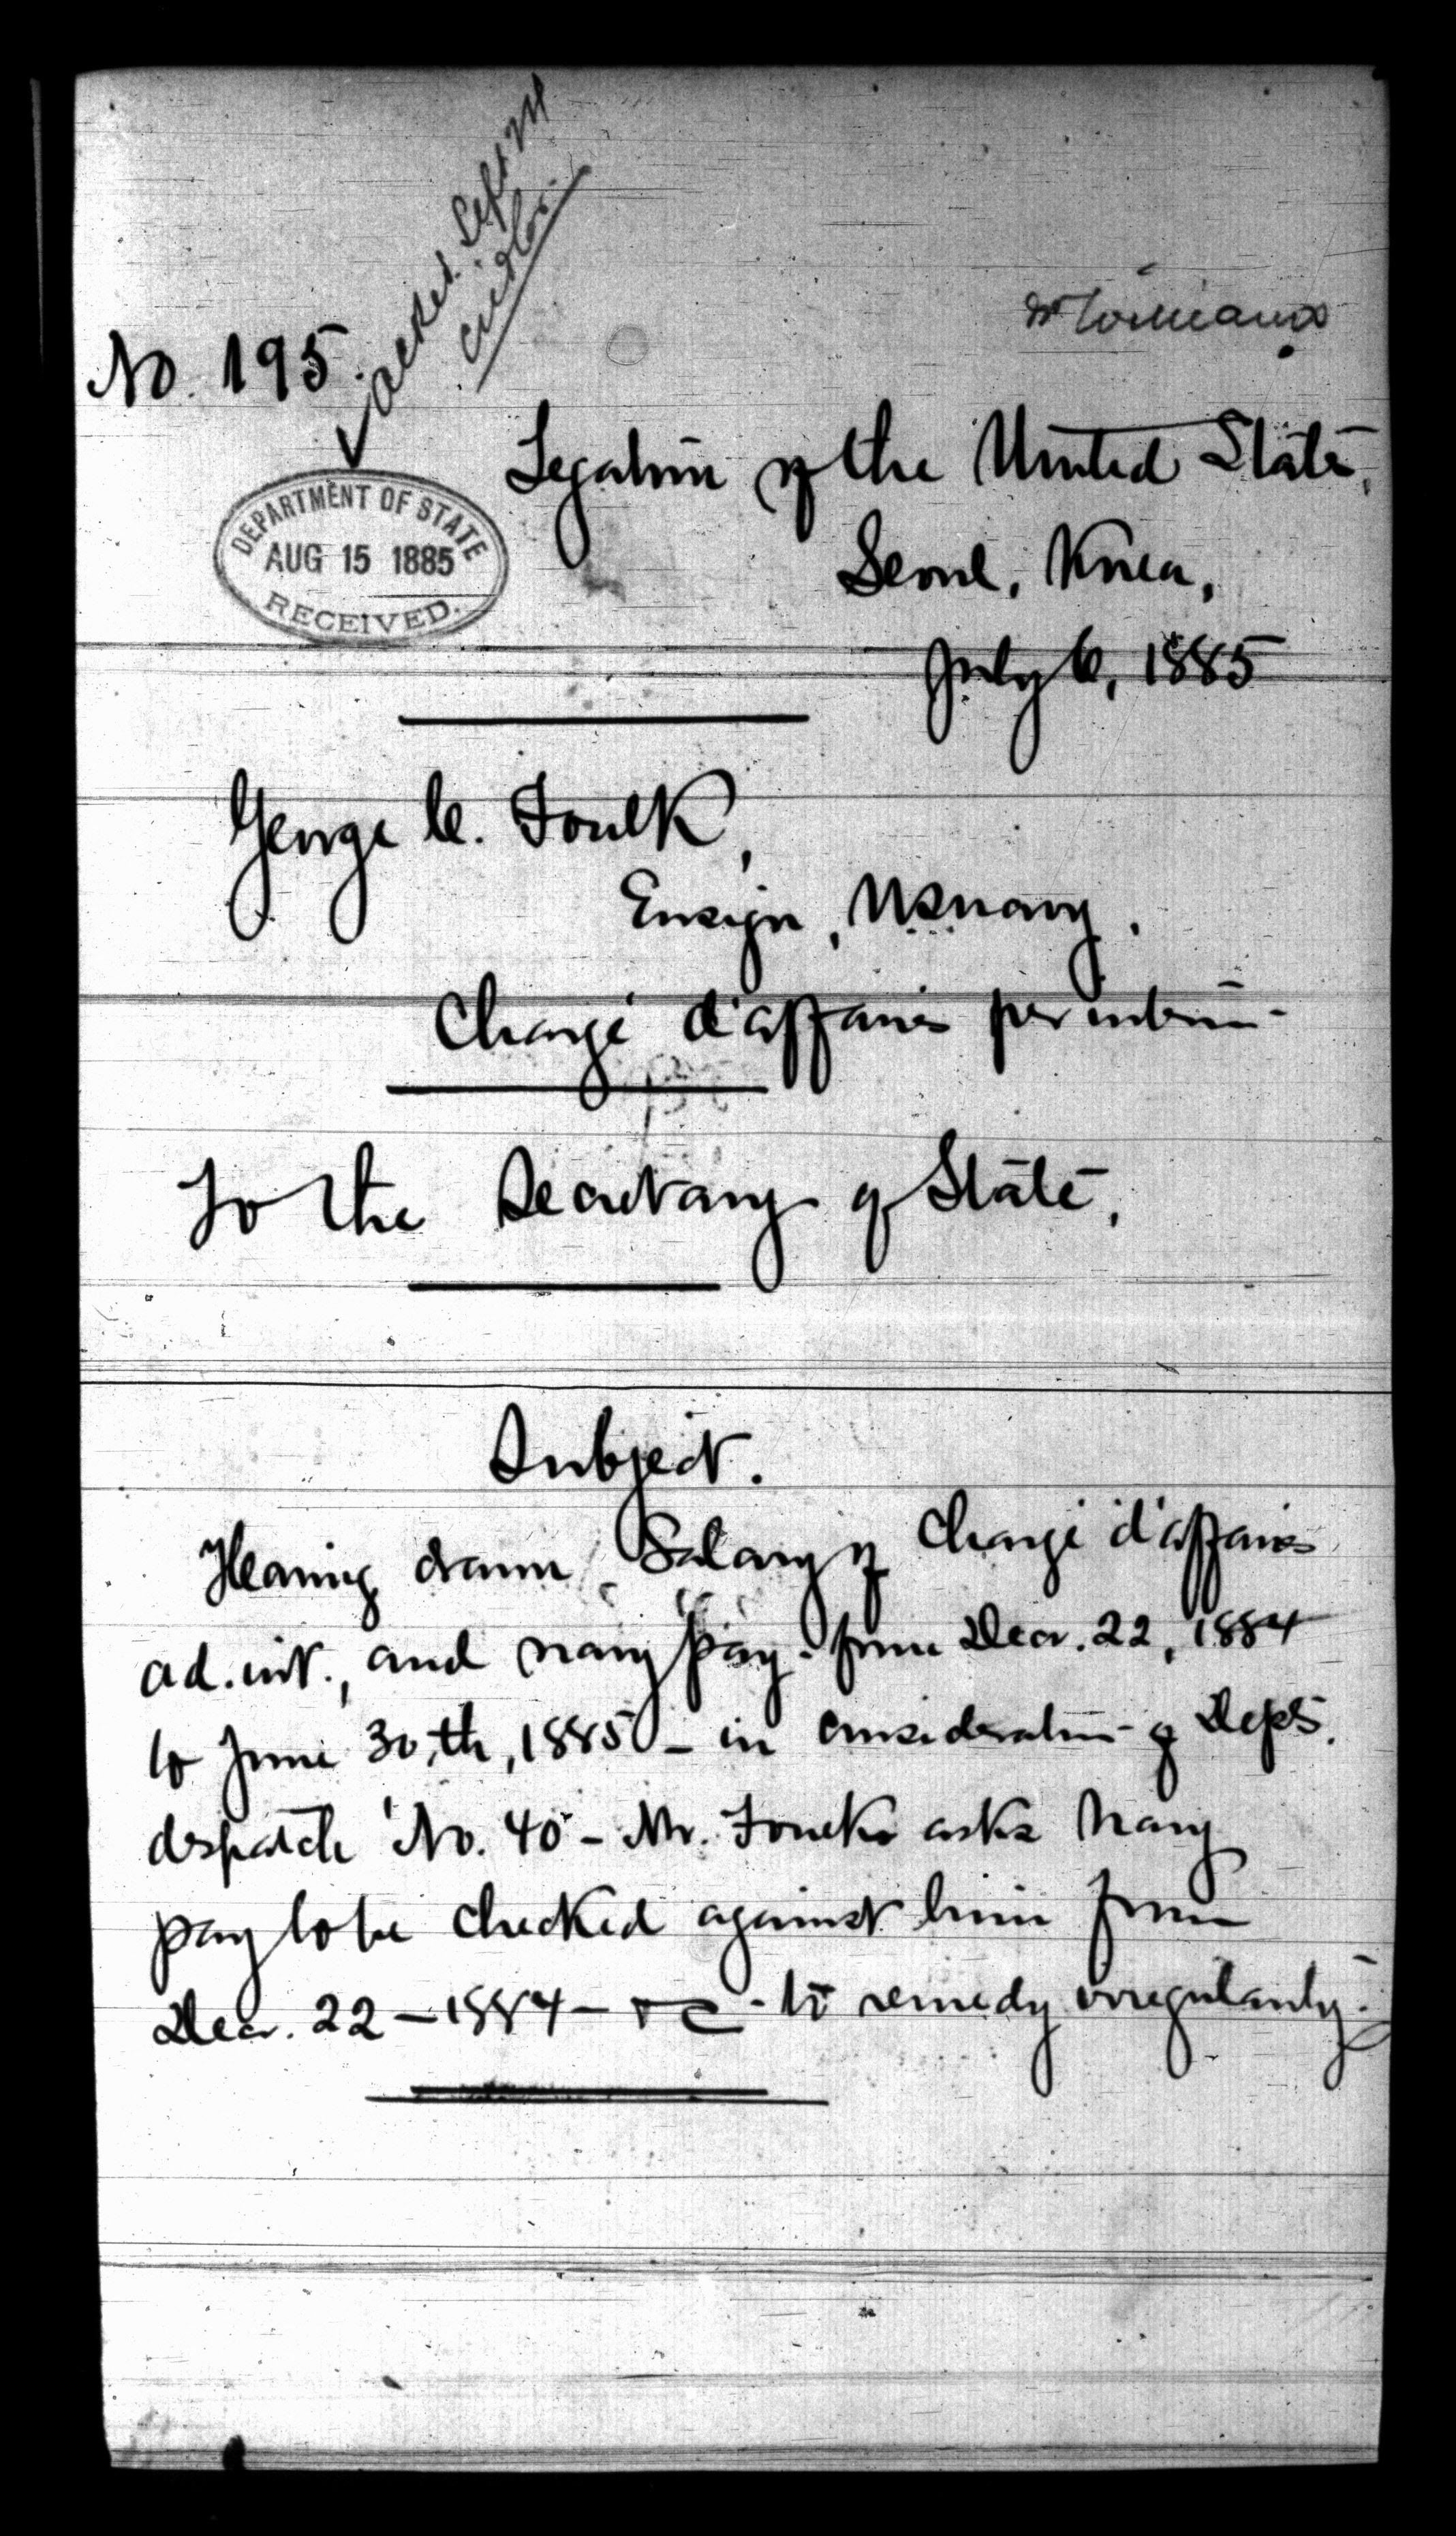 ackd. Sept 24
No. 195.
Legation of the United States,
DEPARTMENT OF STATE
AUG 15 1885
RECEIVED.
Seoul, Korea,
July 6, 1885
George C. Foulk,
Ensign, USNavy.
Chargé d'affaires per interim-
To the Secretary of State,
Subject.
Having drawn, Salary of Chargé d'affaires
ad. int., and navy pay - from Decr. 22, 1884
to June 30,th, 1885 - in consideration of Dept's.
despatch No. 40 - Mr. Foulk asks Navy
pay to be checked against him from
Decr. 22 - 1884 - to remedy irregularity.